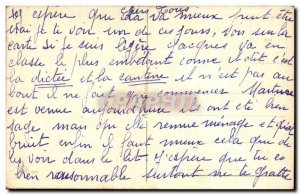 chers Loups
J'espere que ça va mieux peut être
irai je te voir un de ces jours, dis sur la
carte si je suis legère Jacques va en
classe le plus embetant comme il dit c'est
la dictée et la cantine il n'est pas au
bout il ne fait que commencer
est venue aujourd'hui ont été bien
sage mais elle remue menage et
bruit enfin il faut mieux cela que de
la voir dans le lit J'espere que tu es
bien raisonnable surtout ne te gratte